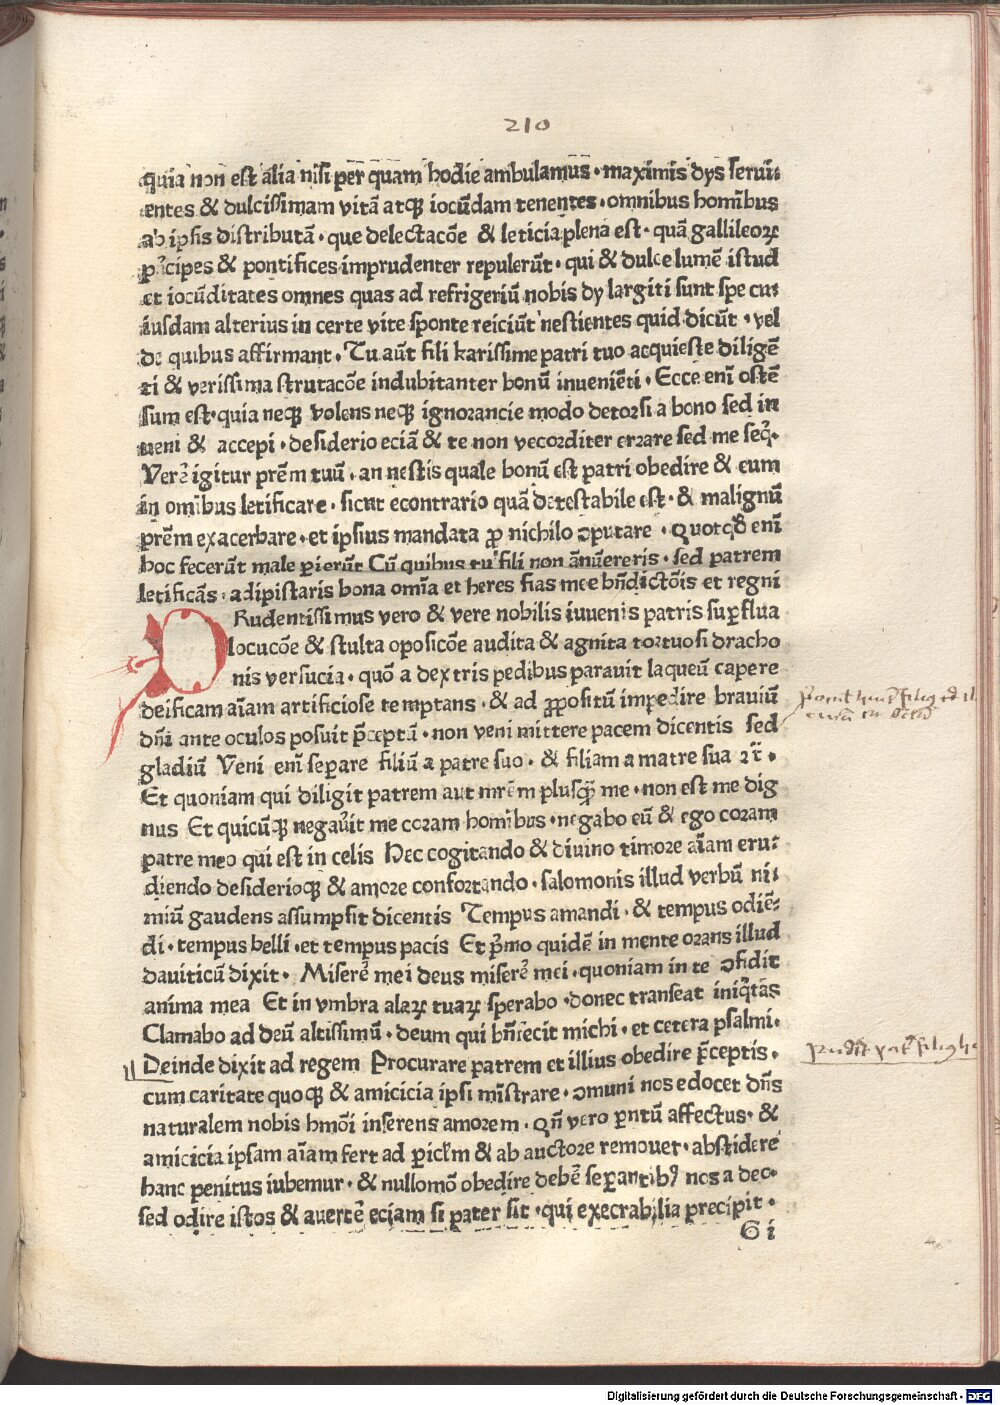 210
quia non est alia nisi per quam hodie ambulamus · maximis dys serui⸗
entes & dulcissimam vitā atqꝫ iocūdam tenentes · omnibus homībus
ab ipsis distributā · que delectacōe & leticia plena est · quā gallileoꝝ
pͥncipes & pontifices imprudenter repulerūt · qui & dulce lumē istud
et iocūditates omnes quas ad refrigeriū nobis dy largiti sunt spe cu⸗
iusdam alterius in certe vite sponte reiciūt nestientes quid dicūt · vel
de quibus affirmant · Tu aūt fili karissime patri tuo acquieste diligē
ti & verissima strutacōe indubitanter bonū inueniēti · Ecce enī ostē
sum est · quia neqꝫ volens neqꝫ ignorancie modo detorsi a bono sed in
ueni & accepi · desiderio eciā & te non vecorditer errare sed me seq̄ ·
Verē igitur prēm tuū · an nestis quale bonū est patri obedire & eum
in omībus letificare · sicut econtrario quā detestabile est · & malignū
prēm exacerbare · et ipsius mandata ꝓ nichilo ɔputare · Quotqͦd enī
hoc fecerūt male ꝑierūt Cū quibus tu fili non ānūereris · sed patrem
letificās · adipistaris bona omīa et heres fias mee bn̄dictōis et regni
PRudentissimus vero & vere nobilis iuuenis patris suꝑflua
locucōe & stulta oposicōe audita & agnita tortuosi dracho
nis versucia · quō a dextris pedibus parauit laqueū capere
deificam aīam artificiose temptans · & ad ꝓpositū impedire brauiū
dn̄i ante oculos posuit p̄ceptū · non veni mittere pacem dicentis sed
gladiū Veni enī separe filiū a patre suo · & filiam a matre sua ⁊ c̄ ·
Et quoniam qui diligit patrem aut mr̄em plusqꝫ me · non est me dig
nus Et quicūqꝫ negau̾it me coram homībus · negabo eū & ego coram
patre meo qui est in celis Hec cogitando & diuino timore aīam eru⸗
diendo desiderioqꝫ & amore confortando · salomonis illud verbū ni⸗
miū gaudens assumpsit dicentis Tempus amandi · & tempus odiē⸗
di · tempus belli · et tempus pacis Et pͥmo quidē in mente orans illud
dauiticū dixit · Miserē mei deus miserē mei · quoniam in te ɔfidit
anima mea Et in vmbra alaꝝ tuaꝝ sperabo · donec transeat iniqͥtas
Clamabo ad deū altissimū · deum qui bn̄fecit michi · et cetera psalmi ·
Deinde dixit ad regem Procurare patrem et illius obedire p̄ceptis ·
cum caritate quoqꝫ & amicicia ipsi mīstrare · ɔmuni nos edocet dn̄s
naturalem nobis hmōi inserens amorem · Qn̄ vero ꝑntū affectus · &
amicicia ipsam aīam fert ad ꝑicl̄m & ab auctore remouet · abstidere
hanc penitus iubemur · & nullomō obedire debē seꝑantibꝰ nos a deo ·
sed odire istos & auertē eciam si pater sit · qui execrabilia precipit ·
G i
Digitalisierung gefördert durch die Deutsche Forschungsgemeinschaft - DFG